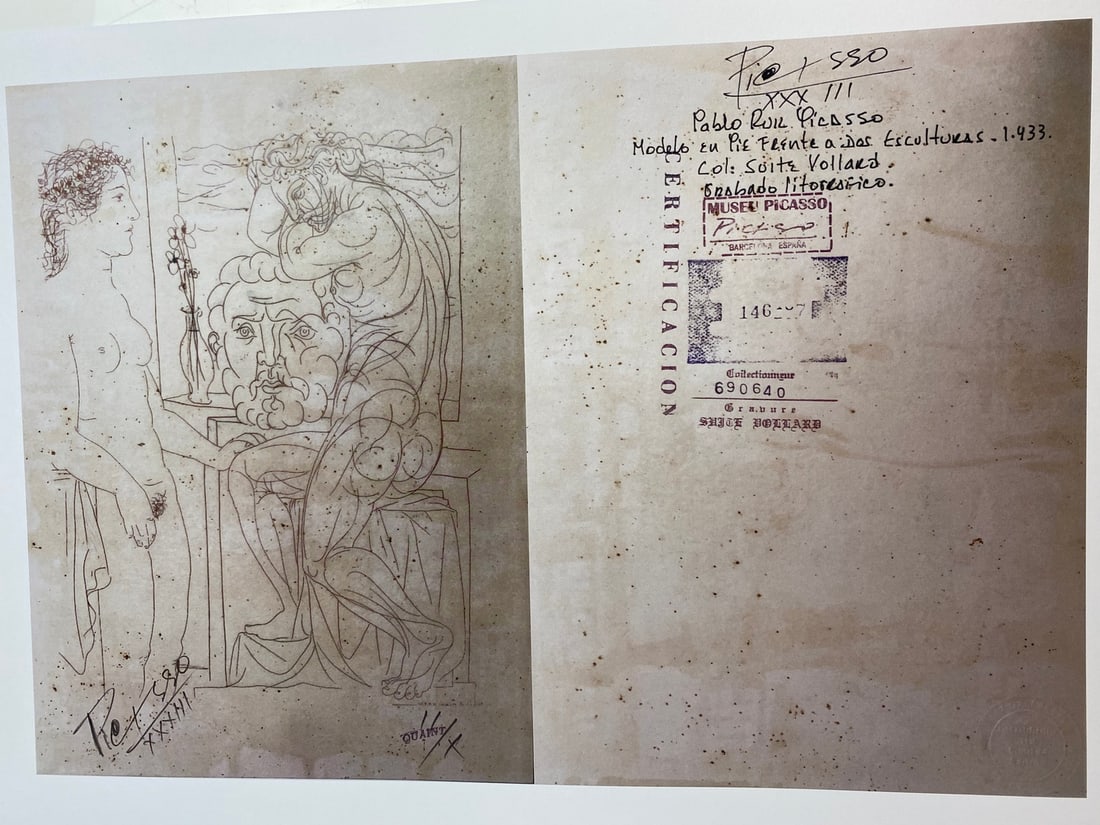 Picasso
XXXIII
QUAINT
Picasso
XXX III
Pablo Ruiz Picasso
Modelo en Pie Frente a Dos Esculturas. 1.933.
Col: Suite Vollard.
Grabado litografico.
CERTIFICACION
MUSEU PiCASSO
Picasso
BARCELONA ESPAÑA
690640
Gravure
SUITE VOLLARD